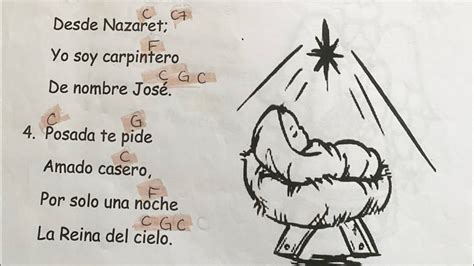 C G7
Desde Nazaret;
F
Yo soy carpintero
C G C
De nombre José.
C G
4. Posada te pide
C
Amado casero,
F
Por solo una noche
C G C
La Reina del cielo.